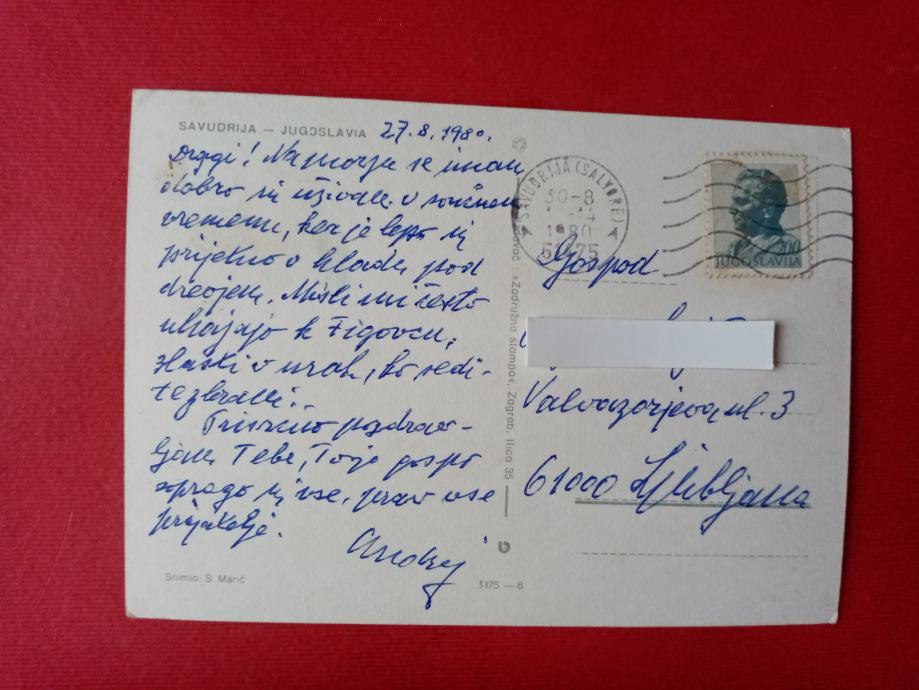 SAVUDRIJA — JUGOSLAVIA 27.8.1980.
Dragi! Na morju se imam
dobro in uživam v sončnem
vremenu, ker je lepo in
prijetno v hladu pod
drevjem. Misli mi često
uhajajo k Žigovcu,
zlasti v urah, ko sedi-
te zbrani.
Prisrčno pozdrav-
ljam Tebe, Tvojo gospo
soprago in vse, prav vse
prijatelje.
Andrej
Snimio S. Marić
3175 — 8
©
»Zadružna štampa«, Zagreb, Ilica 35
SAVUDRIJA (SALVORE)
30-8
1980
JUGOSLAVIJA
Gospod
Valvazorjeva ul. 3
61000 Ljubljana